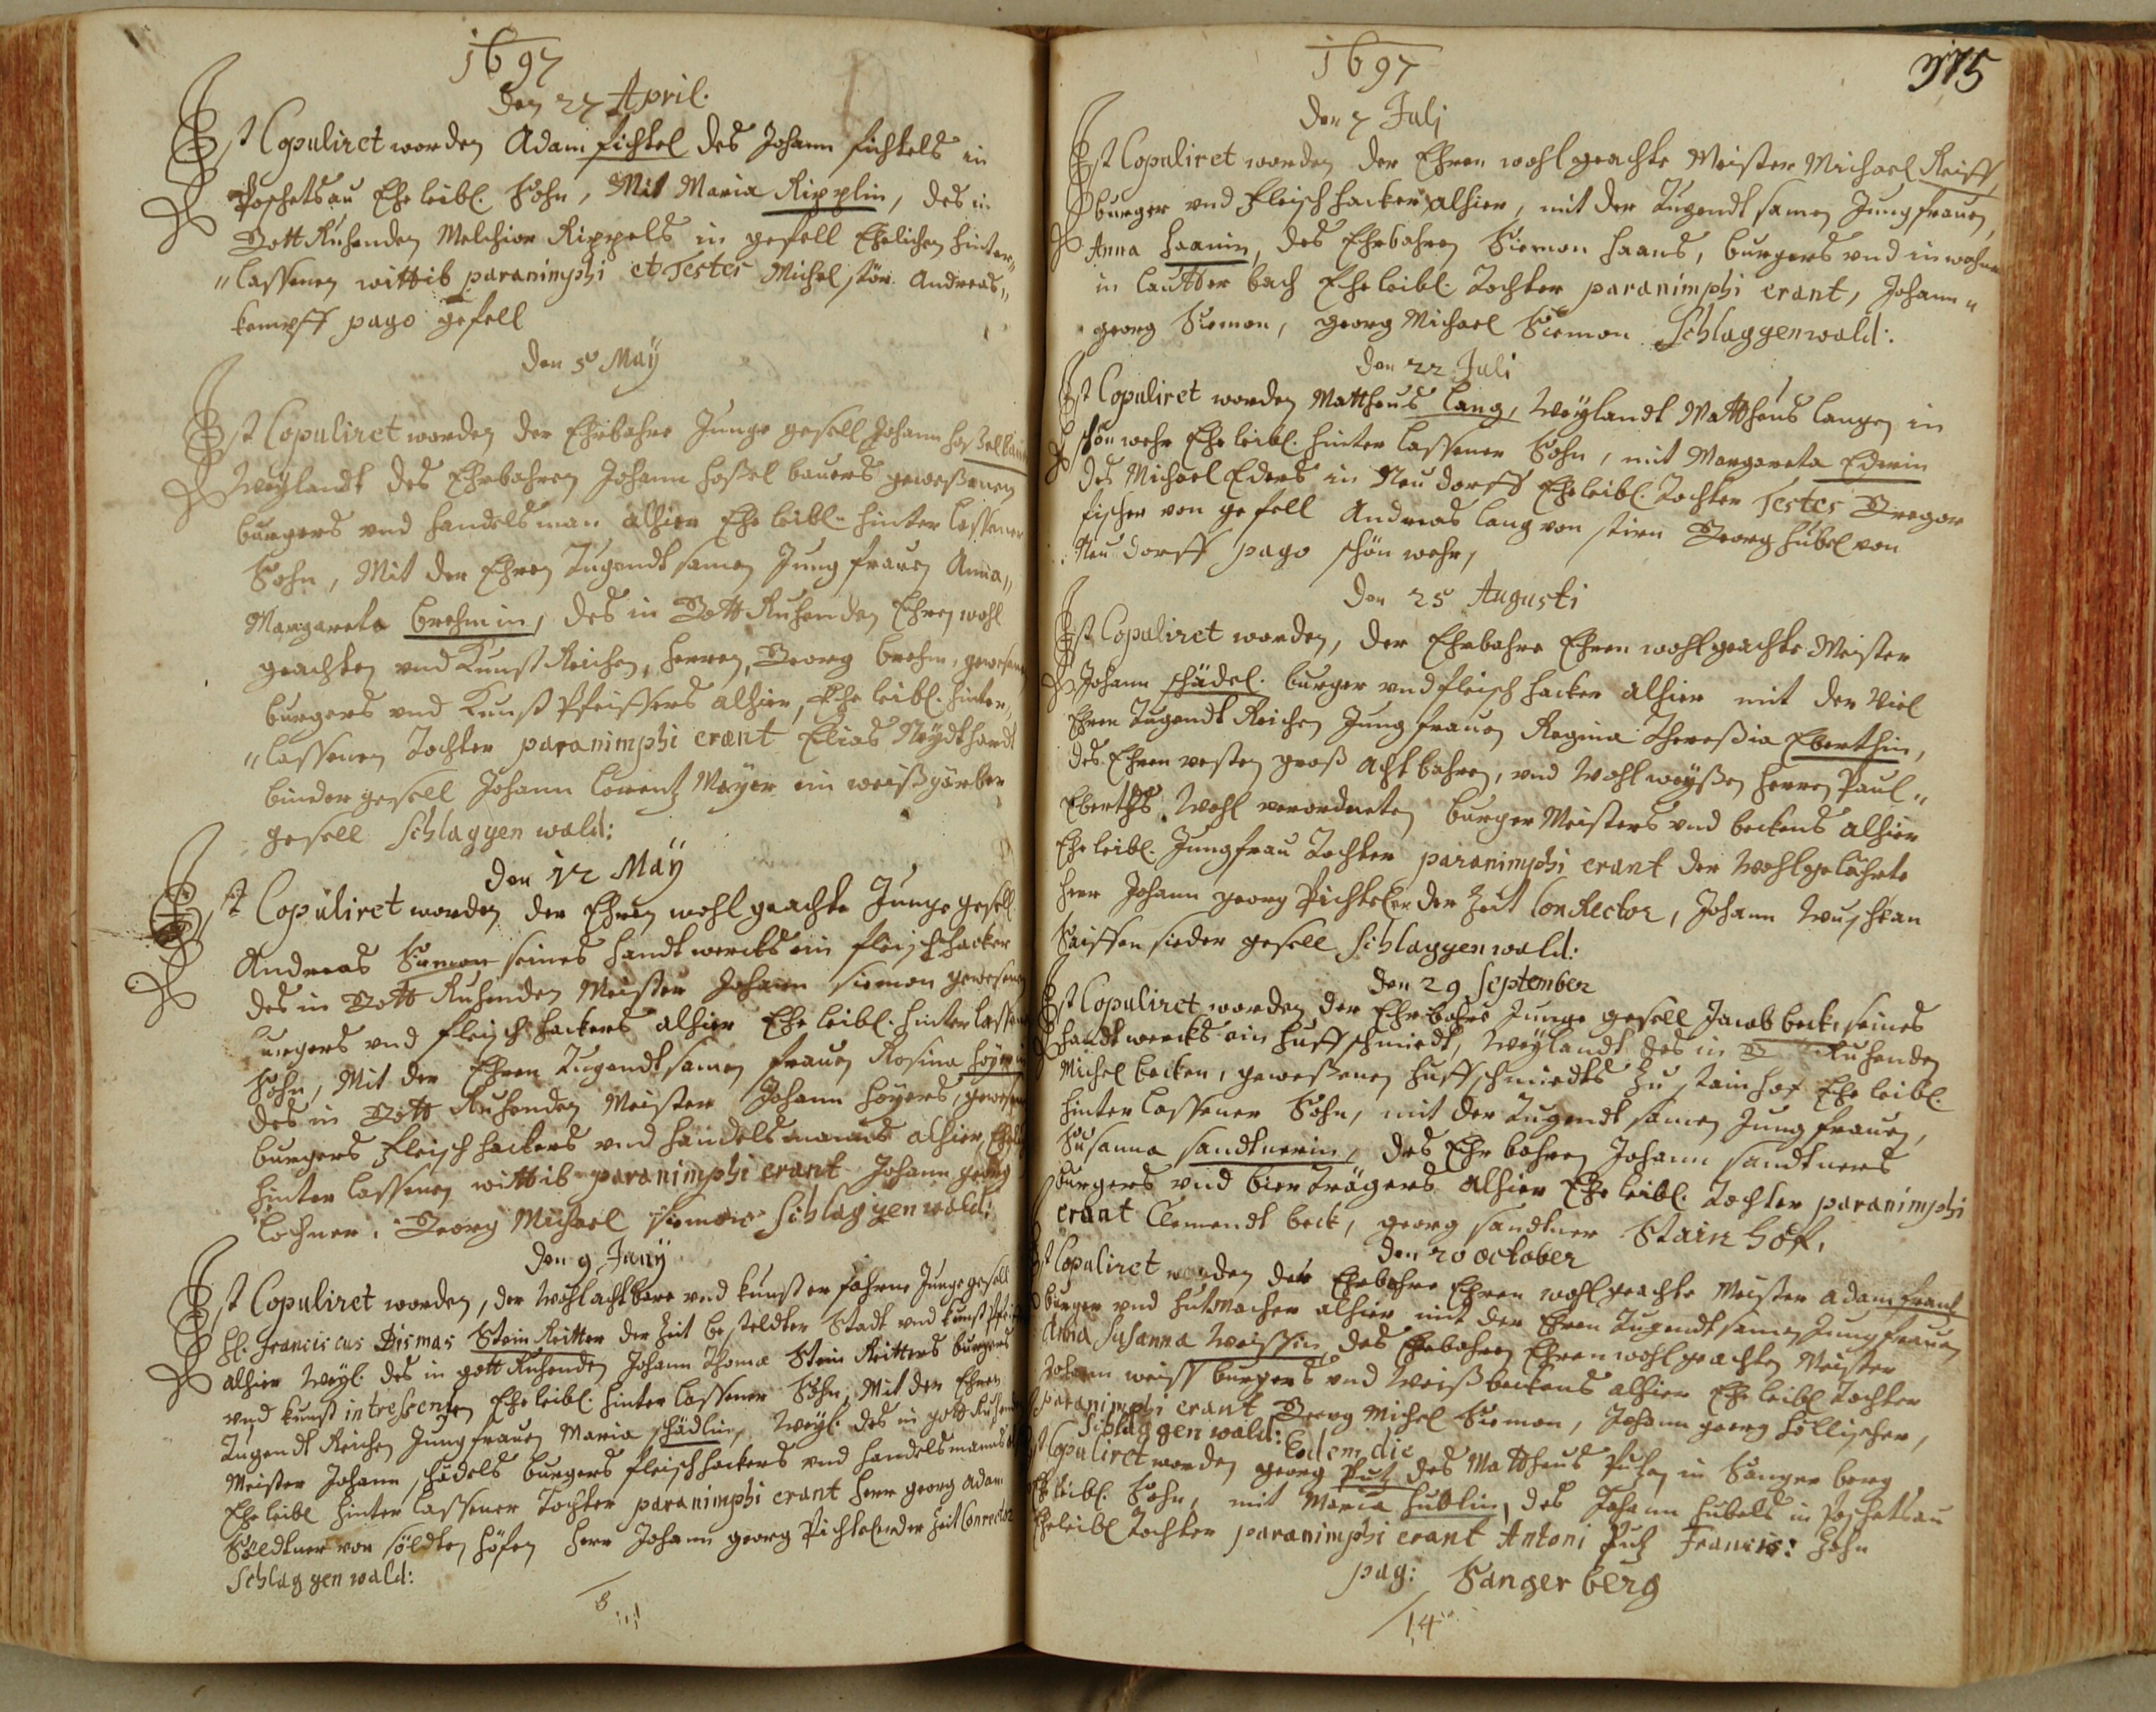 1697
Den 27 April.
Ist Copuliret worden Adam fichtel des Johann fichtels in
Poschetsau Eheleibl. Sohn, Mit Maria Ripplin, des in
Gott Ruhenden Melchior Rippels in gefell Ehelichen hinter„
„lassenen wittib paranimphi et Testes Michel stör Andreas„
kempff pago gefell
Den 5 Maÿ
Ist Copuliret worden der Ehrbahre Junge gesell Johann
Weÿlandt des Ehrbahren Johann hoßel bauers geweßenen
burgers vnd handelsman alhier Eheleibl. hinter lassener
Sohn, Mit der Ehren Tugendtsamen Jungfrauen Anna„
Margareta brehmin, des in Gott Ruhenden Ehren wohl
geachten vnd Kunst Reichen, herren, Georg brehm, gewesenen
burgers vnd Kunst Pfeiffers alhier, Eheleibl. hinter„
„lassenen Tochter paranimphi erant Elias Neÿdthardt
binder gesell Johann Lorentz Maÿer ein weißgärber
gesell Schlaggenwald:
Den 12 Maÿ
Ist Copuliret worden der Ehren wohl geachte Junge gesell
Andreas Siemon seines handtwercks ein fleischhacker
des in Gott Ruhenden Meister Johann siemon gewesenen
burgers vnd fleischhackers alhier Eheleibl. hinterlassener
Sohn, Mit der Ehren Tugendtsamen frauen Rosina
des in Gott Ruhenden Meister Johann höÿers, gewesenen
burgers fleischhackers vnd handelsmanns alhier,
hinter lassenen wittib paranimphi erant Johann georg
Lochner. Georg Michael siemon Schlaggenwald:
Den 9 Junÿ
Ist Copuliret worden, der Wohlachtbare vnd kunst erfahrne Junge gesell
H. Franciscus Dismas Stein Reitter der Zeit bestelter Stadt vnd
alhier Weÿl. des in gott Ruhenden Johann Thomæ Stein Reitters burgers
vnd kunst intressenten Eheleibl. hinter lassener Sohn, Mit der Ehren
Tugendt Reichen Jungfrauen Maria schädlin, Weÿl. des in gott Ruhenden
Meister Johann, schädels burgers fleischhackers vnd handelsmanns
Eheleibl hinter lassener Tochter paranimphi erant herr georg Adam
Söldtner von söldten höfen herr Johann georg Pichtler der Zeit Conrector
Schlaggenwald:
8
1697
375
Den 7 Juli
Ist Copuliret worden der Ehren wohl geachte Meister Michael Reiff,
burger vnd fleischhacker alhier, mit der Tugendtsamen Jungfrauen,
Anna haanin, des Ehrbahren Siemon haans, burgers vnd inwohners
in lautter bach Eheleibl. Tochter paranimphi erant, Johann„
georg Siemon, georg Michael Siemon Schlaggenwald:
Den 22 Juli
Ist Copuliret worden Mattheus lang, Weÿlandt Mattheus langen in
schönwehr Eheleibl. hinter lassener Sohn, mit Margareta Ederin
des Michael Eders in Neudorff Eheleibl. Tochter Testes Gregor
fischer von gefell Andreas lang von stirn Georg hübel von
Neudorff pago schönwehr,
Den 25 Augusti
Ist Copuliret worden, der Ehrbahre Ehren wohlgeachte Meister
Johann schädel. burger vnd fleischhacker alhier mit der Viel
Ehren Tugendt Reichen Jungfrauen Regina Theresia Eberthin,
des Ehren vesten groß achtbahren, vnd Wohl weÿßen herren Paul„
Eberths Wohl verordneten burger Meisters vnd beckens alhier
Eheleibl. Jungfrau Tochter paranimphi erant der Wohlgelährte
herr Johann georg Pichtler der Zeit ConRector, Johann
Saiffensieder gesell Schlaggenwald:
Den 29 September
Ist Copuliret worden der Ehrbahre Junge gesell Jacob beck, seines
handtwercks ein huffschmidt, Weÿlandt des in G Ruhenden
Michel becken, geweßenen huffschmidts zu stainhof Eheleibl.
hinterlassener Sohn, mit der Tugendtsamen Jungfrauen,
Susanna sandtnerin, des Ehrbahren Johann sandtners
burgers vnd bierträgers alhier Eheleibl. Tochter paranimphi
erant Clemendt beck, georg sandtner Stainhöf,
Den 20 October
Ist Copuliret worden der Ehrbahre Ehren wohlgeachte Meister adam
burger vnd hutmacher alhier mit der Ehren Tugendtsamen Jungfrauen
Anna Susanna Weissin, des Ehrbahren Ehrenwohlgeachten Meister
Johann weiss burgers vnd Weißbeckens alhier Eheleibl Tochter
paranimphi erant Georg Michel Siemon, Johann georg höllischer,
Schlaggenwald: Eodem die
Ist Copuliret worden georg Putz des Mattheus Putzen in Sangerberg
Eheleibl. Sohn, mit Maria hüblin, des Johann hübels in Poschetsau
Eheleibl Tochter paranimphi erant Antoni Putz Francis:
pag: Sangerberg
14